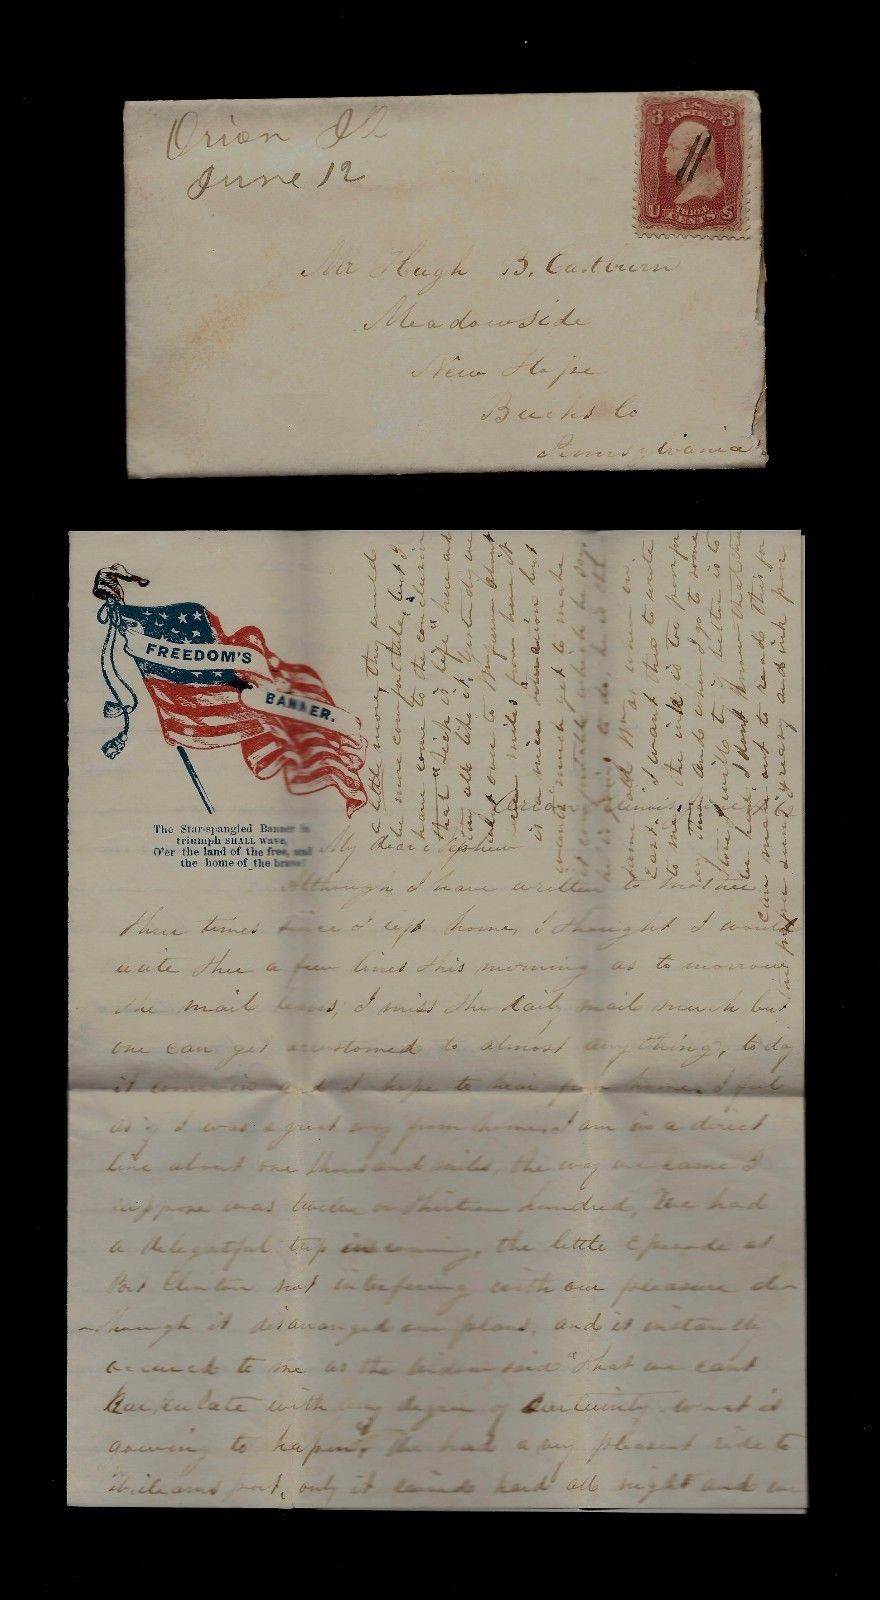 Orion Ill
June 12
3 U.S. POSTAGE 3
THREE CENTS
U S
Mr Hugh B. Eastburn
Meadowside
New Hope
Bucks Co
Pennsylvania
FREEDOM'S
BANNER.
The Star-spangled Banner in
triumph SHALL wave,
O'er the land of the free, and
the home of the brave!
a little more they would
be more comfortable, but I
have come to the conclusion
that "Life is life" here and
they all like it. Yesterday we
miles from here it
is a nice but
wants much yet to make
it comfortable which he says
he is going to do, he is the
same old Wm as when in
East. I want thee to write
to me, the ink is too poor for
and when I go to some
I will try if better is to
be had, I dont know that thee
can make out to read this for
the pen greasy and ink poor
Orion Illinois June
My dear Nephew
Although I have written to Mother
three times since I left home, I thought I would
write thee a few lines this morning as to morrow
the mail leaves, I miss the daily mail much but
one can get accustomed to almost anything, to day
it comes in and I hope to hear from home. I feel
as if I was a great way from home. I am in a direct
line about one thousand miles, the way we came I
suppose was twelve or thirteen hundred, We had
a delightful trip in coming, the little episode at
Port Clinton not interfering with our pleasure al-
-though it disarranged our plans, and it instantly
occured to me as the widow said "that we cant
Kar,ku,late with any degree of certainty what is
gowing to hapin" We had a very pleasant ride to
Williamsport, only it rained hard all night and we